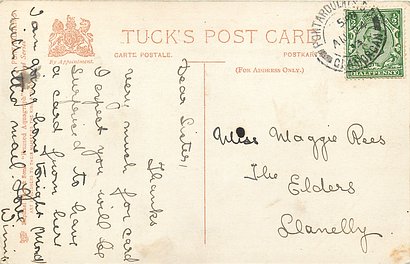 TUCK'S POST CARD
CARTE POSTALE.
POSTKARTE
By Appointment.
(FOR ADDRESS ONLY.)
PONTARDULAIS
GLAMORGAN
HALFPENNY
Dear Sister,
Thanks
very much for card
I expect you will be
surprised to have
a card from her
I am going home tonight
with the mail. Love
Winnie
Miss Maggie Rees
The Elders
Llanelly